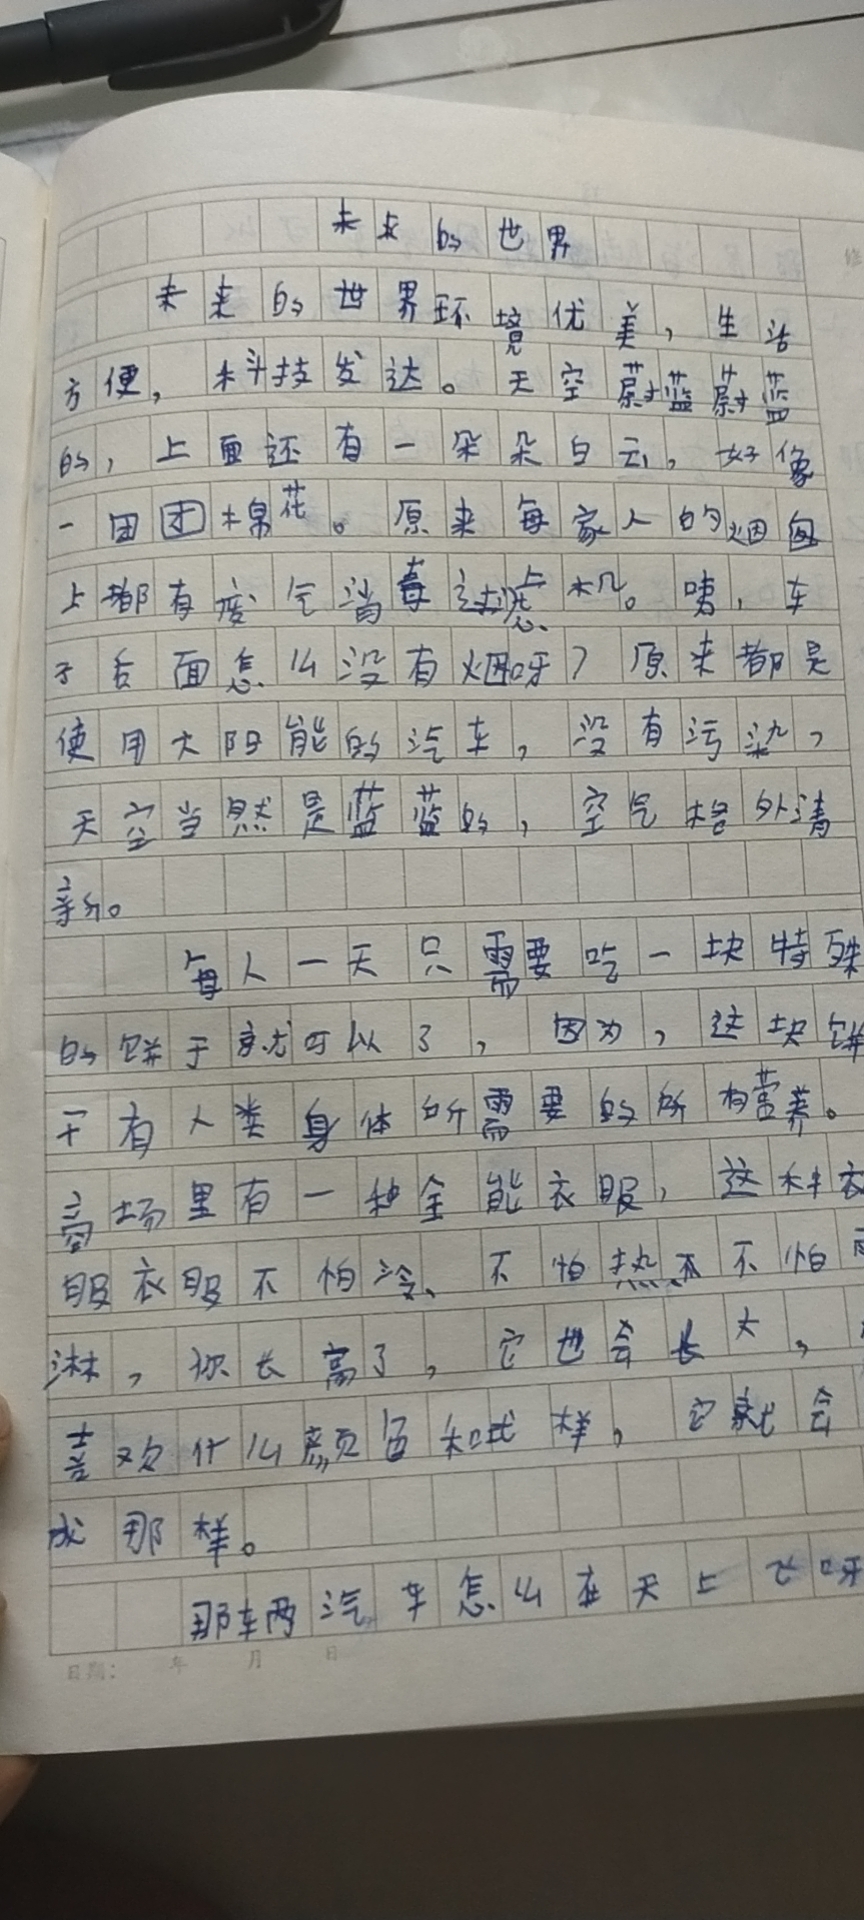 未来的世界
未来的世界环境优美，生活
方便，科技发达。天空蔚蓝蔚蓝
的，上面还有一朵朵白云，好像
一团团棉花。原来每家人的烟囱
上都有废气消毒过滤机。咦，车
子后面怎么没有烟呀？原来都是
使用太阳能的汽车，没有污染，
天空当然是蓝蓝的，空气格外清
新。
每人一天只需要吃一块特殊
的饼干就可以了，因为，这块饼
干有人类身体所需要的所有营养。
商场里有一种全能衣服，这种衣
服衣服不怕冷、不怕热不不怕雨
淋，你长高了，它也会长大，
喜欢什么颜色和式样，它就会
成那样。
那车两汽车怎么在天上飞呀
日期： 年 月 日